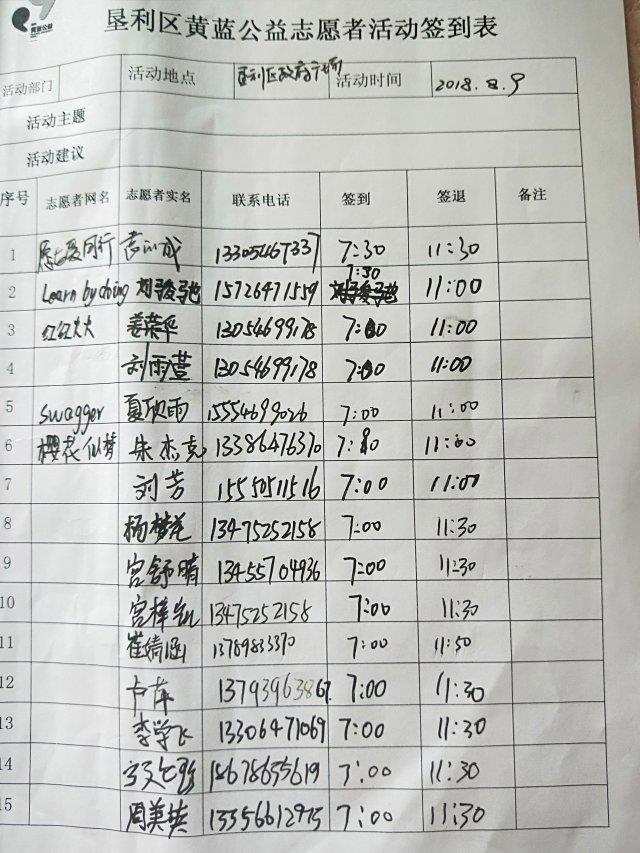 黄蓝公益
垦利区黄蓝公益志愿者活动签到表
活动部门 活动地点 垦利区政府广场 活动时间 2018.8.9
活动主题
活动建议
序号 志愿者网名 志愿者实名 联系电话 签到 签退 备注
1 同行 13305467337 7:30 11:30
2 Learn by doing 刘骏驰 15726471559 7:30 刘骏驰 11:00
3 红红火火 姜荣华 13054699178 7:00 11:00
4 刘雨萱 13054699178 7:00 11:00
5 swagger 夏欣雨 15554699026 7:00 11:00
6 樱花仙梦 朱杰克 13386476370 7:00 11:00
7 刘芳 15550511516 7:00 11:00
8 杨梦尧 13475252158 7:00 11:30
9 宫舒晴 13455704936 7:00 11:30
10 宫梓 13475252158 7:00 11:30
11 崔婧涵 13789833370 7:00 11:50
12 卢萍 13793963867 7:00 11:30
13 李学飞 13306471069 7:00 11:30
14 18678655619 7:00 11:30
15 周美英 13356612975 7:00 11:30